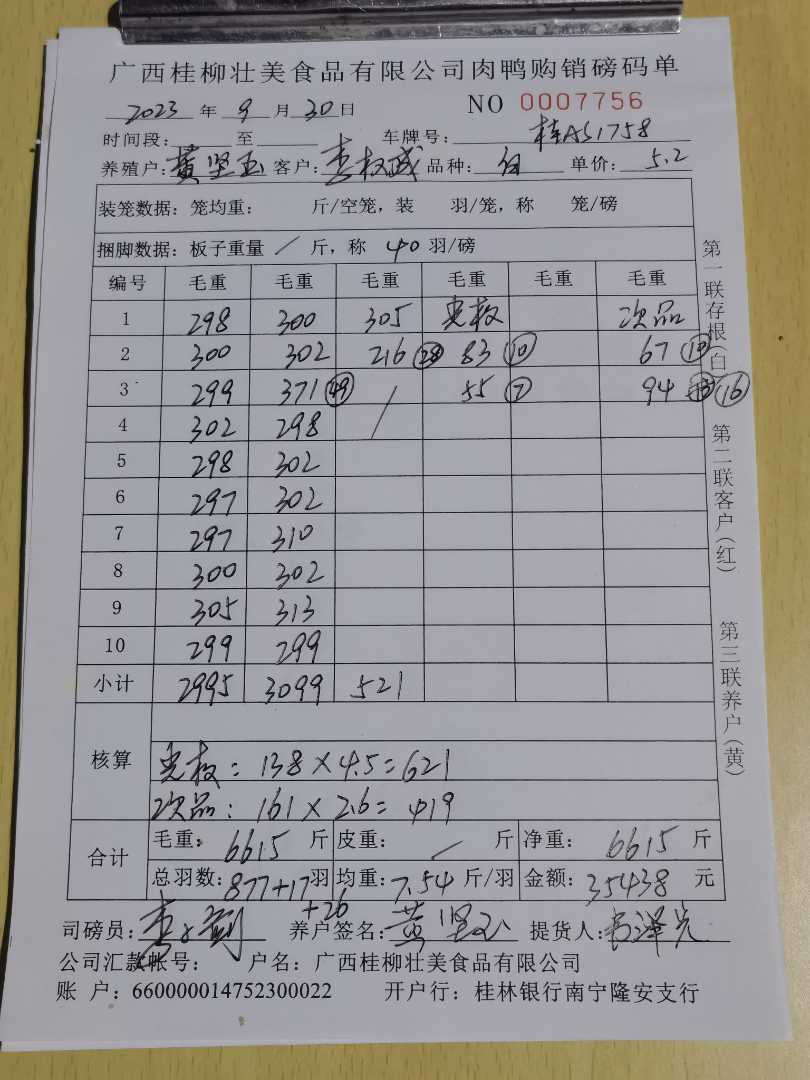 广西桂柳壮美食品有限公司肉鸭购销磅码单
2023 年 9 月 30 日 NO 0007756
时间段: 至 车牌号: 桂AS1758
养殖户: 黄坚玉 客户: 李权成 品种: 白 单价: 5.2
装笼数据: 笼均重: 斤/空笼, 装 羽/笼, 称 笼/磅
捆脚数据: 板子重量 / 斤, 称 40 羽/磅
编号 毛重 毛重 毛重 毛重 毛重 毛重
1 298 300 305 光板 次品
2 300 302 216 28 83 10 67 10
3 299 371 49 / 55 7 94 16
4 302 298
5 298 302
6 297 302
7 297 310
8 300 302
9 305 313
10 299 299
小计 2995 3099 521
核算
光板: 138×4.5=621
次品: 161×2.6=419
合计
毛重: 6615 斤 皮重: / 斤 净重: 6615 斤
总羽数: 877+17 羽 均重: 7.54 斤/羽 金额: 35438 元
+26
司磅员: 养户签名: 黄坚玉 提货人:
公司汇款帐号: 户名: 广西桂柳壮美食品有限公司
账 户: 660000014752300022 开户行: 桂林银行南宁隆安支行
第一联存根(白)
第二联客户(红)
第三联养户(黄)